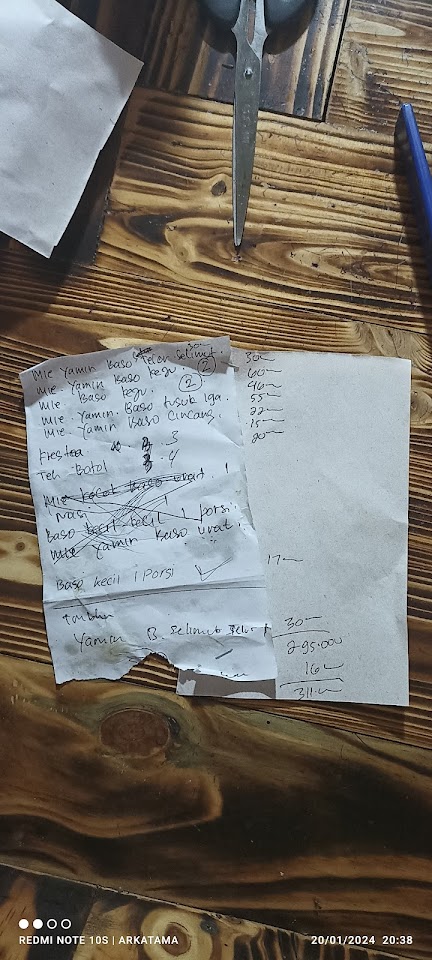 Mie Yamin Baso Telor Selimut.
30
Mie Yamin Baso Keju. (2)
Mie Baso Keju. (2)
Mie Yamin. Baso tusuk Iga.
Mie Yamin Baso Cincang.
Frestea 3
Teh Botol 4
Mie kecil Baso urat. 1
Nasi. 1
Baso kecil kecil 1 porsi.
Mie Yamin Baso urat.
Baso kecil 1 Porsi
Yamin B. Selimut Telur 1
30
60
46
55
22
15
20
17
30
295.000
16
311
REDMI NOTE 10S | ARKATAMA
20/01/2024 20:38